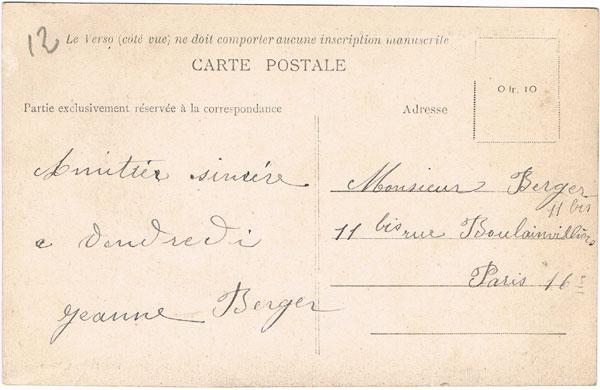 12
Le Verso (côté vue) ne doit comporter aucune inscription manuscrite
CARTE POSTALE
0 fr. 10
Partie exclusivement réservée à la correspondance
Adresse
Amitiés sincère
a Vendredi
Jeanne Berger
Monsieur Berger
11 bis
11 bis rue Boulainvilliers
Paris 16e